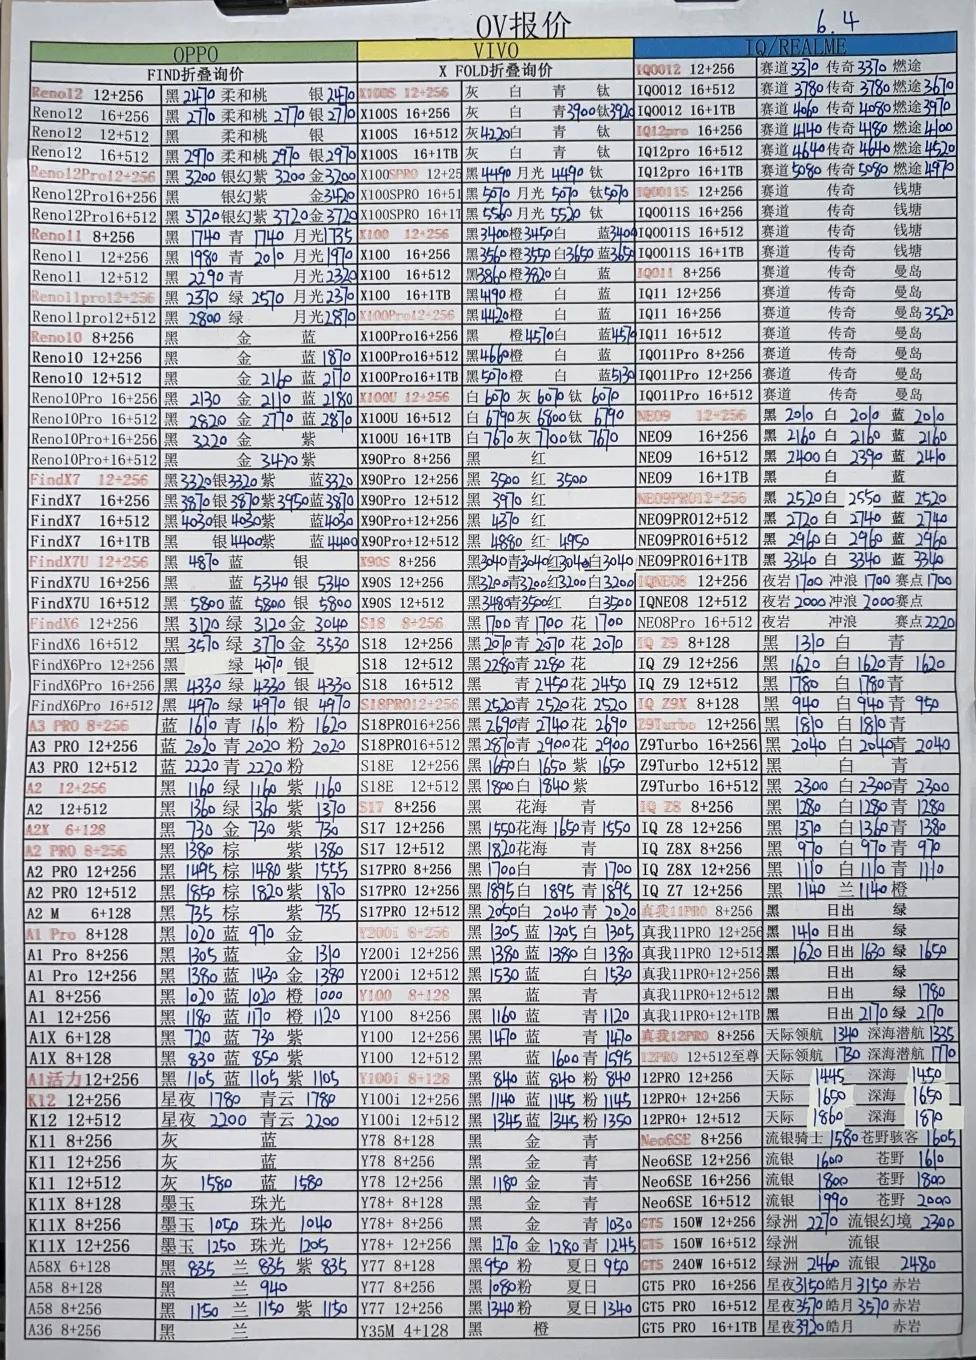 OV报价
6.4
OPPO VIVO IQ/REALME
FIND折叠询价 X FOLD折叠询价 IQ0012 12+256 赛道3370 传奇3370 燃途
Reno12 12+256 黑2470 柔和桃 银2470 X100S 12+256 灰 白 青 钛 IQ0012 16+512 赛道3780 传奇3780 燃途3670
Reno12 16+256 黑2770 柔和桃2770 银2770 X100S 16+256 灰 白 青3900 钛3920 IQ0012 16+1TB 赛道4060 传奇4080 燃途3970
Reno12 12+512 黑 柔和桃 银 X100S 16+512 灰4220 白 青 钛 IQ12pro 16+256 赛道4140 传奇4180 燃途4100
Reno12 16+512 黑2970 柔和桃2970 银2970 X100S 16+1TB 灰 白 青 钛 IQ12pro 16+512 赛道4640 传奇4640 燃途4520
Reno12Pro12+256 黑3200 银幻紫3200 金3200 X100SPRO 12+25 黑4490 月光4490 钛 IQ12pro 16+1TB 赛道5080 传奇5080 燃途4970
Reno12Pro16+256 黑 银幻紫 金3420 X100SPRO 16+51 黑5070 月光5070 钛5070 IQ0011S 12+256 赛道 传奇 钱塘
Reno12Pro16+512 黑3720 银幻紫3720 金3720 X100SPRO 16+1T 黑5560 月光5520 钛 IQ0011S 16+256 赛道 传奇 钱塘
Reno11 8+256 黑1740 青1740 月光1735 X100 12+256 黑3400 橙3450 白 蓝3400 IQ0011S 16+512 赛道 传奇 钱塘
Reno11 12+256 黑1980 青2010 月光1970 X100 16+256 黑3560 橙3550 白3650 蓝3650 IQ0011S 16+1TB 赛道 传奇 钱塘
Reno11 12+512 黑2290 青 月光2320 X100 16+512 黑3860 橙3820 白 蓝 IQ011 8+256 赛道 传奇 曼岛
Reno11pro12+256 黑2370 绿2570 月光2370 X100 16+1TB 黑4190 橙 白 蓝 IQ11 12+256 赛道 传奇 曼岛
Reno11pro12+512 黑2800 绿 月光2870 X100Pro12+256 黑4420 橙 白 蓝 IQ11 16+256 赛道 传奇 曼岛3520
Reno10 8+256 黑 金 蓝 X100Pro16+256 黑 橙4570 白 蓝4570 IQ11 16+512 赛道 传奇 曼岛
Reno10 12+256 黑 金 蓝1870 X100Pro16+512 黑4660 橙 白 蓝 IQO11Pro 8+256 赛道 传奇 曼岛
Reno10 12+512 黑 金2160 蓝2170 X100Pro16+1TB 黑5070 橙 白 蓝5130 IQO11Pro 12+256 赛道 传奇 曼岛
Reno10Pro 16+256 黑2130 金2110 蓝2180 X100U 12+256 白6070 灰6070 钛6070 IQO11Pro 16+512 赛道 传奇 曼岛
Reno10Pro 16+512 黑2820 金2770 蓝2870 X100U 16+512 白6790 灰6800 钛6790 NEO9 12+256 黑2010 白2010 蓝2010
Reno10Pro+16+256 黑3220 金 紫 X100U 16+1TB 白7670 灰7700 钛7670 NEO9 16+256 黑2160 白2160 蓝2160
Reno10Pro+16+512 黑 金3420 紫 X90Pro 8+256 黑 红 NEO9 16+512 黑2400 白2390 蓝2410
FindX7 12+256 黑3320 银3320 紫 蓝3320 X90Pro 12+256 黑3500 红3500 NEO9 16+1TB 黑 白 蓝
FindX7 16+256 黑3870 银3870 紫3950 蓝3870 X90Pro 12+512 黑3970 红 NEO9PRO12+256 黑2520 白2550 蓝2520
FindX7 16+512 黑4030 银4030 紫 蓝4030 X90Pro+12+256 黑4370 红 NEO9PRO12+512 黑2720 白2740 蓝2740
FindX7 16+1TB 黑 银4400 紫 蓝4400 X90Pro+12+512 黑4880 红4950 NEO9PRO16+512 黑2960 白2960 蓝2960
FindX7U 12+256 黑4870 蓝 银 X90S 8+256 黑3040 青3040 红3040 白3040 NEO9PRO16+1TB 黑3340 白3340 蓝3340
FindX7U 16+256 黑 蓝5340 银5340 X90S 12+256 黑3200 青3200 红3200 白3200 IQNEO8 12+256 夜岩1700 冲浪1700 赛点1700
FindX7U 16+512 黑5800 蓝5800 银5800 X90S 12+512 黑3480 青3500 红 白3500 IQNEO8 12+512 夜岩2000 冲浪2000 赛点
FindX6 12+256 黑3120 绿3120 金3040 S18 8+256 黑1700 青1700 花1700 NEO8Pro 16+512 夜岩 冲浪 赛点2220
FindX6 16+512 黑3570 绿3770 金3530 S18 12+256 黑2070 青2070 花2070 IQ Z9 8+128 黑1310 白 青
FindX6Pro 12+256 黑 绿4070 银 S18 12+512 黑2280 青2280 花 IQ Z9 12+256 黑1620 白1620 青1620
FindX6Pro 16+256 黑4330 绿4330 银4330 S18 16+512 黑 青2450 花2450 IQ Z9 12+512 黑1780 白1780 青
FindX6Pro 16+512 黑4970 绿4970 银4970 S18PRO12+256 黑2520 青2520 花2520 IQ Z9X 8+256 黑940 白940 青950
A3 PRO 8+256 蓝1610 青1610 粉1620 S18PRO16+256 黑2690 青2740 花2690 Z9Turbo 12+256 黑1810 白1810 青
A3 PRO 12+256 蓝2020 青2020 粉2020 S18PRO16+512 黑2870 青2900 花2900 Z9Turbo 16+256 黑2040 白2040 青2040
A3 PRO 12+512 蓝2220 青2220 粉 S18E 12+256 黑1650 白1650 紫1650 Z9Turbo 12+512 黑 白 青
A2 12+256 黑1160 绿1160 紫1160 S18E 12+512 黑1800 白1840 紫 Z9Turbo 16+512 黑2300 白2300 青2300
A2 12+512 黑1360 绿1360 紫1370 S17 8+256 黑 花海 青 IQ Z8 8+256 黑1280 白1280 青1280
A2X 6+128 黑730 金730 紫730 S17 12+256 黑1550 花海1650 青1550 IQ Z8 12+256 黑1370 白1360 青1380
A2 PRO 8+256 黑1380 棕 紫1380 S17 12+512 黑1820 花海 青 IQ Z8X 8+256 黑970 白970 青970
A2 PRO 12+256 黑1495 棕1480 紫1555 S17PRO 8+256 黑1700 白 青1700 IQ Z8X 12+256 黑1110 白1110 青1110
A2 PRO 12+512 黑1850 棕1820 紫1870 S17PRO 12+256 黑1895 白1895 青1895 IQ Z7 12+256 黑1140 兰1140 橙
A2 M 6+128 黑735 棕 紫735 S17PRO 12+512 黑2050 白2040 青2020 真我11PRO 8+256 黑 日出 绿
A1 Pro 8+128 黑1020 蓝970 金 Y200i 8+256 黑1305 蓝1305 白1305 真我11PRO 12+256 黑1410 日出 绿
A1 Pro 8+256 黑1305 蓝 金1310 Y200i 12+256 黑1380 蓝1380 白1380 真我11PRO 12+512 黑1620 日出1630 绿1650
A1 Pro 12+256 黑1380 蓝1430 金1380 Y200i 12+512 黑1530 蓝 白1530 真我11PRO+12+256 黑 日出 绿
A1 8+256 黑1020 蓝1020 橙1000 Y100 8+128 黑 蓝 青 真我11PRO+12+512 黑 日出 绿1780
A1 12+256 黑1180 蓝1170 橙1120 Y100 8+256 黑1160 蓝 青1120 真我11PRO+12+1TB 黑 日出2170 绿2170
A1X 6+128 黑720 蓝730 紫 Y100 12+256 黑1470 蓝 青1470 真我12PRO 8+256 天际领航1340 深海潜航1335
A1X 8+128 黑830 蓝850 紫 Y100 12+512 黑 蓝1600 青1595 12PRO 12+512至尊 天际领航1730 深海潜航1770
A1活力12+256 黑1105 蓝1105 紫1105 Y100i 8+128 黑840 蓝840 粉840 12PRO 12+256 天际1445 深海1450
K12 12+256 星夜1780 青云1780 Y100i 12+256 黑1140 蓝1145 粉1145 12PRO+ 12+256 天际1650 深海1650
K12 12+512 星夜2200 青云2200 Y100i 12+512 黑1345 蓝1345 粉1350 12PRO+ 12+512 天际1860 深海1870
K11 8+256 灰 蓝 Y78 8+128 黑 金 青 Neo6SE 8+256 流银骑士1580 苍野骇客1605
K11 12+256 灰 蓝 Y78 8+256 黑 金 青 Neo6SE 12+256 流银1600 苍野1610
K11 12+512 灰1580 蓝1580 Y78 12+256 黑1180 金 青 Neo6SE 12+512 流银1800 苍野1800
K11X 8+128 墨玉 珠光 Y78+ 8+128 黑 金 青 Neo6SE 16+512 流银1990 苍野2000
K11X 8+256 墨玉1050 珠光1040 Y78+ 8+256 黑 金 青1030 GT5 150W 12+256 绿洲2270 流银幻境2300
K11X 12+256 墨玉1250 珠光1205 Y78+ 12+256 黑1270 金1280 青1245 GT5 150W 16+512 绿洲 流银
A58X 6+128 黑835 兰835 紫835 Y77 8+128 黑950 粉 夏日950 GT5 240W 16+512 绿洲2460 流银2480
A58 8+128 黑 兰940 Y77 8+256 黑1080 粉 夏日 GT5 PRO 16+256 星夜3150 皓月3150 赤岩
A58 8+256 黑1150 兰1150 紫1150 Y77 12+256 黑1340 粉 夏日1340 GT5 PRO 16+512 星夜3570 皓月3570 赤岩
A36 8+256 黑 兰 Y35M 4+128 黑 橙 GT5 PRO 16+1TB 星夜3920 皓月 赤岩